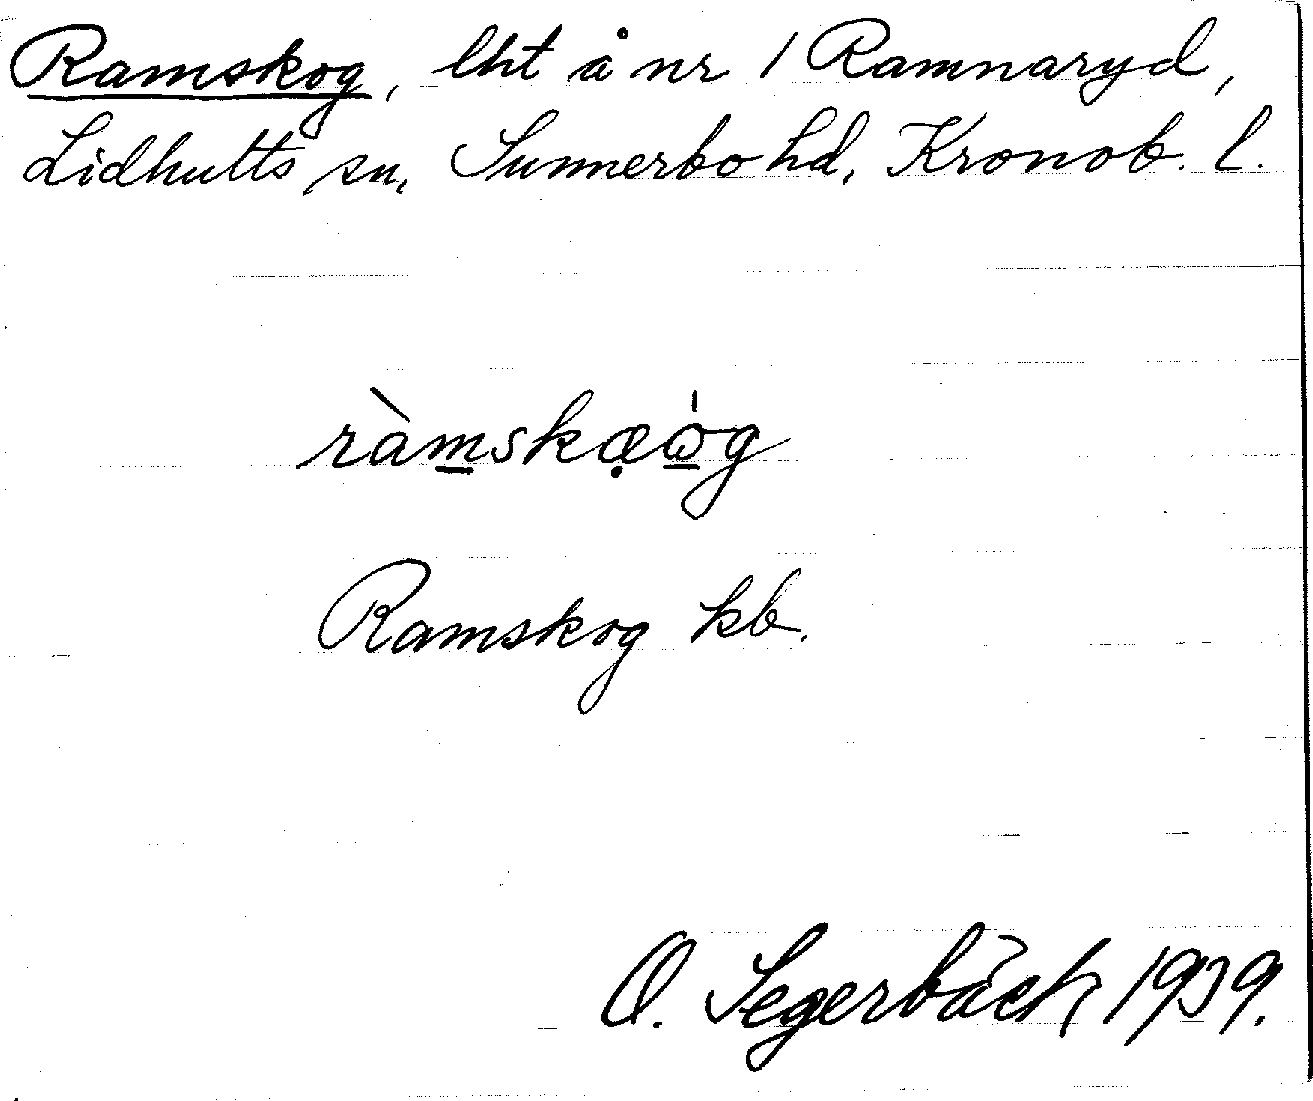 Ramskog, lht å nr 1 Ramnaryd,
Lidhults sn, Sunnerbo hd, Kronob. l.
ràm̲skæ̣ω̲̍g
Ramskog kb.
O. Segerbäck 1939.